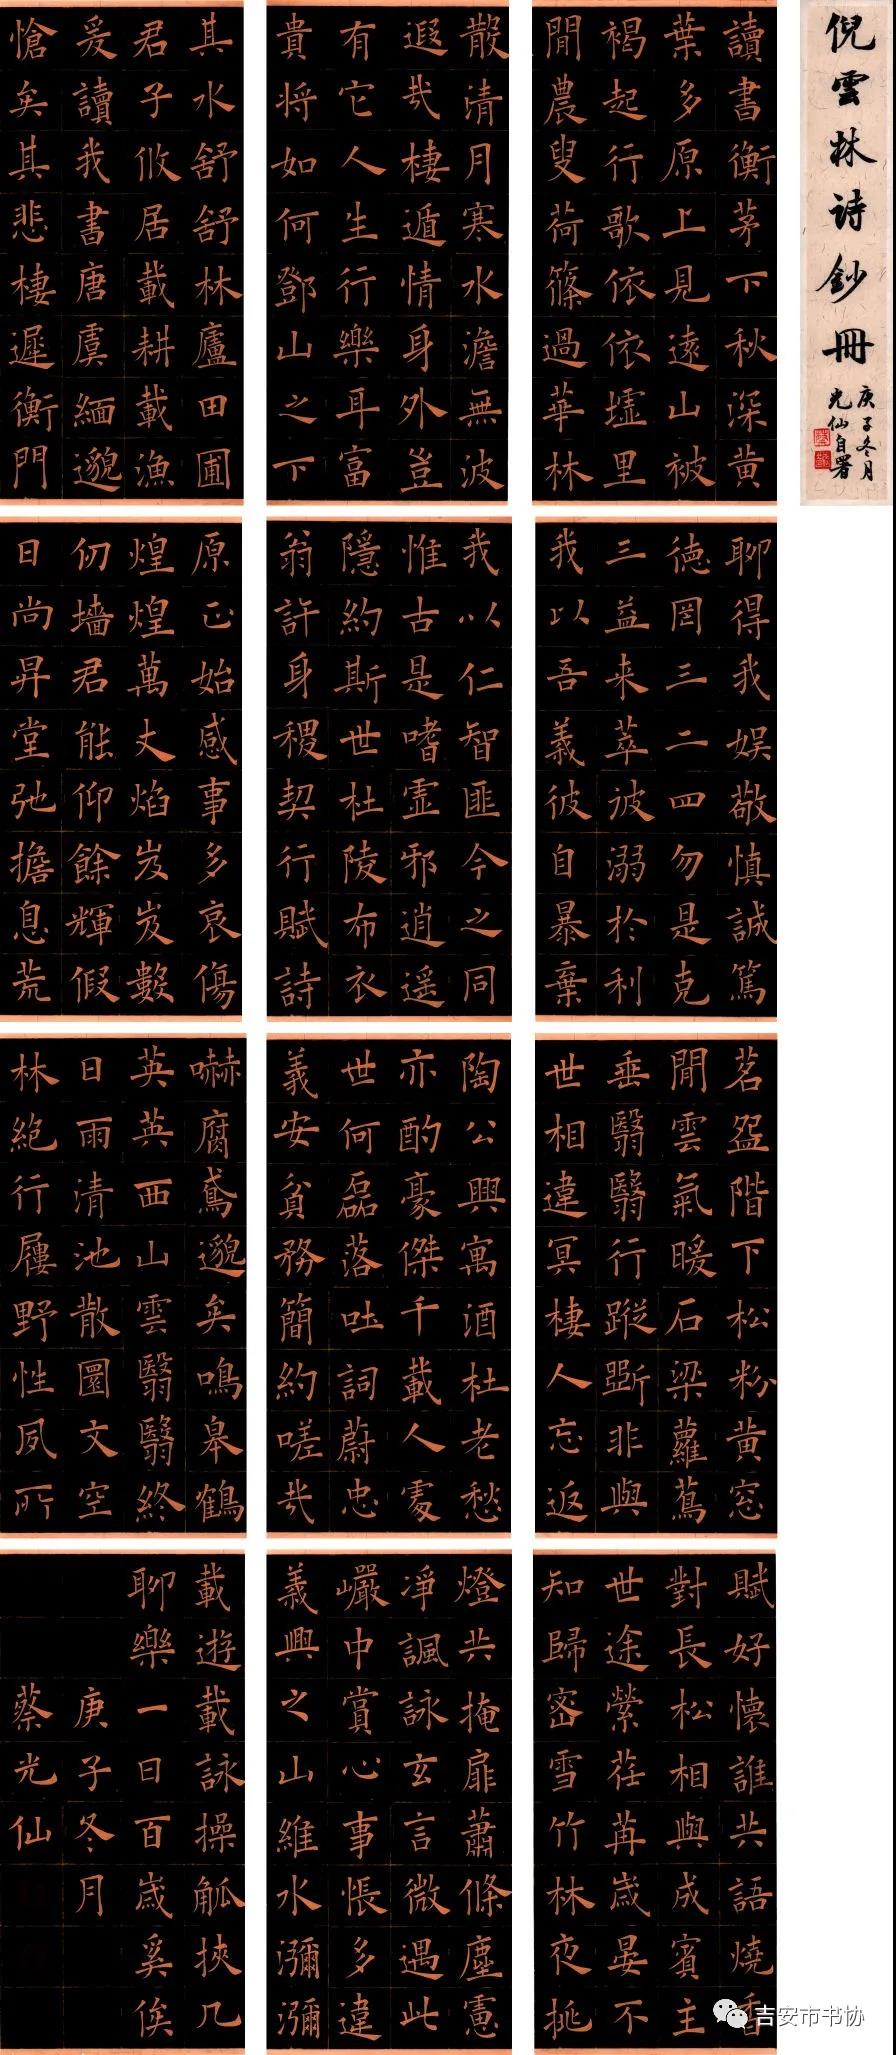 倪雲林詩鈔冊
庚子冬月
光仙自署
讀書衡茅下秋深黃
葉多原上見遠山被
褐起行歌依依墟里
間農叟荷篠過華林
散清月寒水澹無波
遐哉棲遁情身外豈
有它人生行樂耳富
貴將如何鄧山之下
其水舒舒林廬田圃
君子攸居載耕載漁
爰讀我書唐虞緬邈
愴矣其悲棲遲衡門
聊得我娛敬慎誠篤
徳罔三二四勿是克
三益来萃彼溺於利
我以吾義彼自暴棄
我以仁智匪今之同
惟古是嗜霊邪逍遥
隱約斯世杜陵布衣
翁許身稷契行賦詩
原正始感事多哀傷
煌煌萬丈焰岌岌數
仞墻君能仰餘輝假
日尚昇堂弛擔息荒
茗盌階下松粉黃窓
間雲氣暖石梁蘿蔦
垂翳翳行蹤斷非與
世相違冥棲人忘返
陶公興寓酒杜老愁
亦酌豪傑千載人處
世何磊落吐詞蔚忠
義安貧務簡約嗟哉
嚇腐鳶邈矣鳴皋鶴
英英西山雲翳翳終
日雨清池散圓文空
林絕行屨野性夙所
賦好懷誰共語燒香
對長松相與成賓主
世途縈荏苒歲晏不
知歸密雪竹林夜挑
燈共掩扉蕭條塵慮
淨諷詠玄言微遇此
巖中賞心事悵多違
義興之山維水瀰瀰
載遊載詠操觚挾几
聊樂一日百歲奚俟
庚子冬月
蔡光仙
吉安市书协